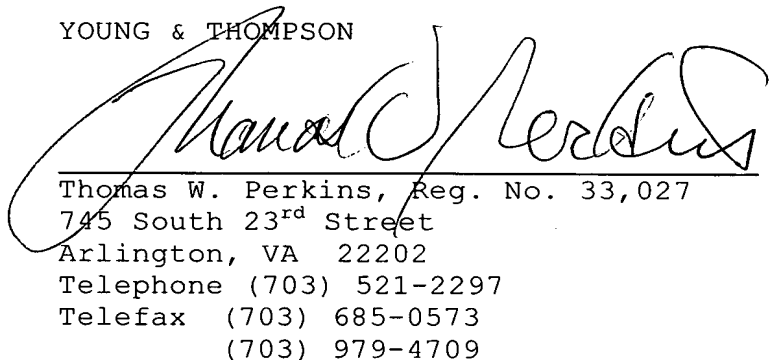 YOUNG & THOMPSON
Thomas W. Perkins
Thomas W. Perkins, Reg. No. 33,027
745 South 23rd Street
Arlington, VA 22202
Telephone (703) 521-2297
Telefax (703) 685-0573
(703) 979-4709